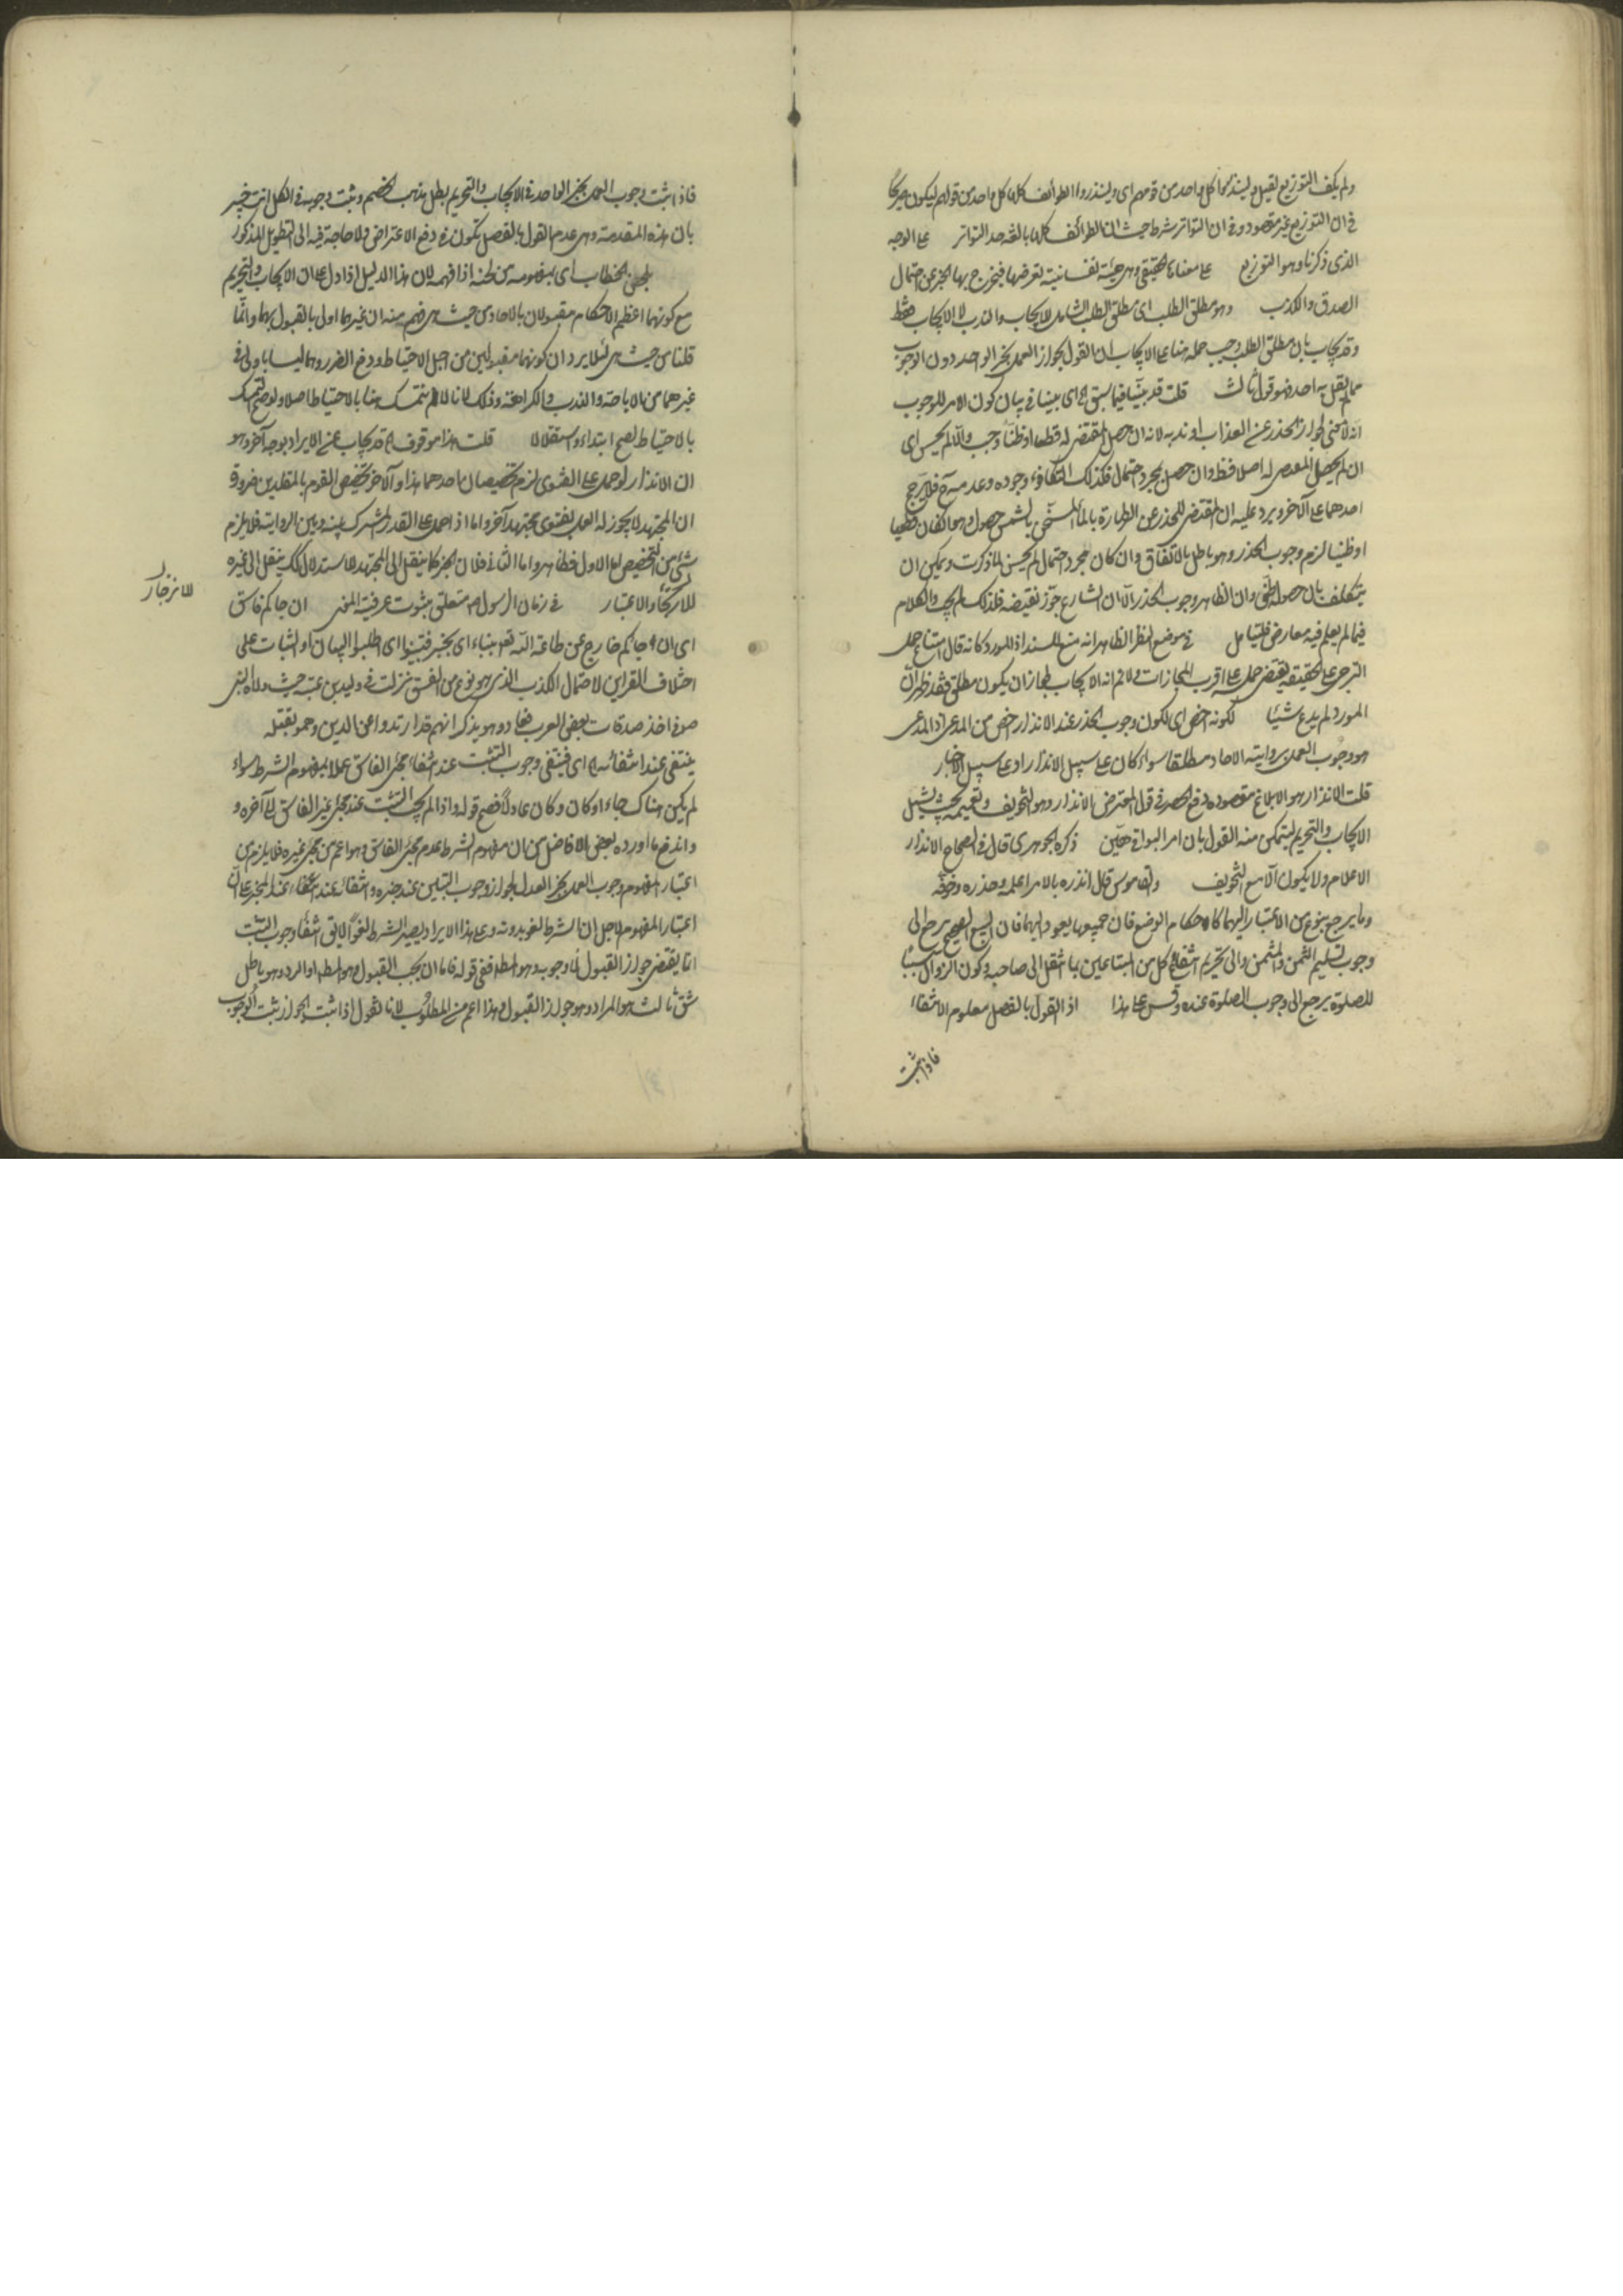 ولم يكف التوزيع لقيل ولينذروا كل واحد من قومهم اى ولينذروا الطوائف كلها كل واحد من قولهم ليكون صريحا
فى ان التوزيع غير مقصود وفى ان التواتر شرط حيث ان الطوائف كلها بالغة حد التواتر على الوجه
الذى ذكرنا وهو التوزيع على معناها الحقيقى وهى هيئة نفسانية تعرضها فيخرج بها الخبر عن احتمال
الصدق والكذب وهو مطلق الطلب اى مطلق الطلب الشامل للايجاب والندب لا الايجاب فقط
وقد يجاب بان مطلق الطلب وجب حمله هنا على الايجاب اذ القول بجواز العمل بخبر الواحد دون الوجوب
مما لم يقل به احد فهو قول ثالث قلت قد بينا فيما سبق اى بينا فى بيان كون الامر للوجوب
انه لا معنى لجواز الحذر عن العذاب او ندبه لانه ان حصل المقتضى له قطعا او ظنا وجب والا لم يحسن اى
ان لم يحصل المقتضى له اصلا فظ وان حصل بمجرد احتمال فكذلك لتكافؤ وجوده وعدمه ح فلا يرجح
احدهما على الآخر ويرد عليه ان المقتضى للحذر عن الطهارة بالماء المسخن بالشمس حصوله هنا كان قطعيا
او ظنيا لزم وجوب الحذر وهو باطل بالاتفاق وان كان مجرد احتمال لم يحسن لما ذكرت ويمكن ان
يتكلف بان حصوله ظنى وان الظاهر وجوب الحذر الا ان الشارع جوز نقيضه فلذلك لم يجب والكلام
فيما لم يعلم فيه معارض فليتامل فى موضع النظر الظاهر انه منع للسند اذ للمورد كانه قال امتناع حمل
الترجى على الحقيقة يقتضى حمله على اقرب المجازات ولا نم انه الايجاب لجواز ان يكون مطلق فقد ظهر ان
المورد لم يدع شيئا لكونه اخص اى لكون وجوب الحذر عند الانذار اخص من المدعى اذ المدعى
هو وجوب العمل برواية الاحاد مطلقا سواء كان على سبيل الانذار او على سبيل الاخبار
قلت الانذار هو الابلاغ مقصوده دفع الحصر فى قول المعترض الانذار وهو التخويف وتعميمه بحيث يشمل
الايجاب والتحريم ليتمكن منه القول بان امر البواقى هين ذكره الجوهرى قال فى الصحاح الانذار
الاعلام ولا يكون الا مع التخويف والقاموس قال انذره بالامر اعلمه وحذره وخوفه
وما يرجع بنوع من الاعتبار اليهما كاحكام الوضع فان جميعها يعود اليهما فان البيع الصحيح يرجع الى
وجوب تسليم الثمن والمثمن والى تحريم انتفاع كل من المتبايعين بما انتقل الى صاحبه وكون الزوال سببا
للصلوة يرجع الى وجوب الصلوة عنده وقس على هذا اذ القول بالفصل معلوم الانتفاء
فاذا ثبت
فاذا ثبت وجوب العمل بخبر الواحد فى الايجاب والتحريم بطل مذهب الخصم وثبت وجوبه فى الكل انت خبير
بان هذه المقدمة وهى عدم القول بالفصل تكون فى دفع الاعتراض ولا حاجة فيه الى التطويل المذكور
بلحن الخطاب اى بمفهومه من لحنه اذا فهمه لان هذا الدليل اذا دل على ان الايجاب والتحريم
مع كونهما اعظم الاحكام مقبولان بالاحاد من حيث هى فهم منه ان غيرهما اولى بالقبول بها وانما
قلنا من حيث هى لئلا يرد ان كونهما مقبولين من اجل الاحتياط ودفع الضرر وهما ليسا باولى فى
غيرهما من الاباحة والندب والكراهة وذلك لانا لا نتمسك هنا بالاحتياط اصلا ولو صح التمسك
بالاحتياط لصح ابتداء واستقلالا قلت هذا موقوف الخ قد يجاب عن الايراد بوجه آخر وهو
ان الانذار لو حمل على الفتوى لزم تخصيصان احدهما هذا والآخر تخصيص القوم بالمقلدين ضرورة
ان المجتهد لا يجوز له العمل بفتوى مجتهد آخر واما اذا حمل على القدر المشترك بينه وبين الرواية فلا يلزم
شئ من التخصيص اما الاول فظاهر واما الثانى فلان الخبر كما ينقل الى المجتهد للاستدلال كك ينقل الى غيره
للارتجاء والاعتبار فى زمان الرسول ص متعلق بثبوت عرفية المخبر ان جاءكم فاسق
لانزجار
اى ان جاءكم خارج عن طاعة الله تعم بنباء اى بخبر فتبينوا اى اطلبوا البيان او الثبات على
اختلاف القراءتين لاحتمال الكذب الذى هو نوع من الفسق نزلت فى وليد بن عتبة حيث ولاه النبى
ص فى اخذ صدقات بعض العرب فعاد وهو يذكر انهم قد ارتدوا عن الدين وهموا بقتله
ينتفى عند انتفائه الخ اى فينتفى وجوب التثبت عند انتفاء مجئ الفاسق عملا بمفهوم الشرط سواء
لم يكن هناك جاء او كان وكان عادلا فصح قوله واذا لم يجب التثبت عند مجئ غير الفاسق الى آخره و
واندفع ما اورده بعض الافاضل من ان مفهوم الشرط عدم مجئ الفاسق وهو اعم من مجئ غيره فلا يلزم من
اعتبار المفهوم وجوب العمل بخبر العدل لجواز وجوب التبين عند خبره وانتفائه عند انتفاء المخبر على ان
اعتبار المفهوم لاجل ان الشرط لغو بدونه وعلى هذا الايراد يصير الشرط لغوا لا يق انتفاء وجوب التثبت
انما يقتضى جواز القبول لا وجوبه وهو المط ففى قوله فاما ان يجب القبول وهو المط او الرد وهو باطل
شق ثالث هو المراد وهو جواز القبول وهذا اعم من المطلوب لانا نقول اذا ثبت الجواز ثبت الوجوب